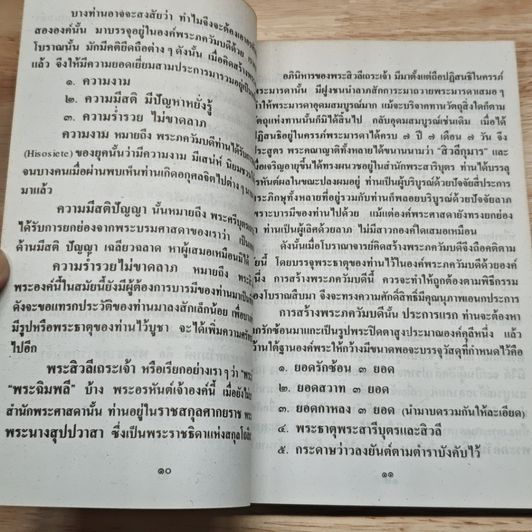 บางท่านอาจจะสงสัยว่า ทำไมจึงจะต้องเอา
สององค์นั้น มาบรรจุอยู่ในองค์พระภควัมบดีด้วย
โบราณนั้น มักมีคติยึดถือต่างๆ ดังนั้น เมื่อคิดสร้าง
แล้ว จึงให้มีความยอดเยี่ยมสามประการมารวมอยู่
๑. ความงาม
๒. ความมีสติ มีปัญหาหยั่งรู้
๓. ความร่ำรวย ไม่ขาดลาภ
ความงาม หมายถึง พระภควัมบดีท่านได้รับ
(Hisosiete) ของยุคนั้นว่ามีความงาม มีเสน่ห์ นิยม
จนบางคนเมื่อผ่านพบเห็นท่านเกิดอกุศลจิตไปต่าง ๆ
มาแล้ว
ความมีสติปัญญา นั้นหมายถึง พระศรีบุตร
ได้รับการยกย่องจากพระบรมศาสดาของเราว่า เป็น
ด้านมีสติ ปัญญา เฉลียวฉลาด หาผู้เสมอเหมือนมิได้
ความร่ำรวยไม่ขาดลาภ หมายถึง
พระองค์นี้ในสมัยนี้ยังมีผู้ต้องการบารมีของท่านมา
ดังจะขอแทรกประวัติของท่านมาลงสักเล็กน้อย เพื่อ
มีรูปหรือพระธาตุของท่านไว้บูชา จะได้เพิ่มความ
ไปอีก
พระสิวลีเถระเจ้า หรือเรียกอย่างเราๆ ว่า
"พระฉิมพลี" บ้าง พระอรหันต์เจ้าองค์นี้ เมื่อยัง
สำนักพระศาสดานั้น ท่านอยู่ในราชสกุลศากยราช
พระนางสุปปวาสา ซึ่งเป็นพระราชธิดาแห่งสกุล
๑๐
อภินิหารของพระสิวลีเถระเจ้า มีมาตั้งแต่ถือปฏิสนธิในครรภ์
พระมารดานั้น มีฝูงชนนำลาภสักการะมาถวายพระมารดาเสมอ ๆ
ให้พระมารดาอุดมสมบูรณ์มาก แม้จะบริจาคทานวัตถุสิ่งใดก็ตาม
วัตถุแห่งทานนั้นก็มิได้สิ้นไป กลับอุดมสมบูรณ์เช่นเดิม เมื่อได้
ปฏิสนธิอยู่ในครรภ์พระมารดาได้ครบ ๗ ปี ๗ เดือน ๗ วัน จึง
ประสูตร พระคณาญาติทั้งหลายได้ขนานนามว่า "สิวลีกุมาร" และ
เมื่อเจริญอายุขึ้นได้ทรงผนวชอยู่ในสำนักพระสารีบุตร ท่านได้บรรลุ
อรหันต์ผลในขณะปลงผมอยู่ ท่านเป็นผู้บริบูรณ์ด้วยปัจจัยสี่ประการ
พระภิกษุทั้งหลายที่อยู่ร่วมกับท่านก็พลอยบริบูรณ์ด้วยปัจจัยลาภ
บารมีของท่านไปด้วย แม้แต่องค์พระศาสดายังทรงยกย่อง
ท่านเป็นผู้เลิศด้วยลาภ ไม่มีสาวกองค์ใดเสมอเหมือน
ดังนั้นเมื่อโบราณาจารย์คิดสร้างพระภควัมบดีจึงถือคติตาม
นี้ โดยบรรจุพระธาตุของท่านไว้ในองค์พระภควัมบดีด้วยองค์
การสร้างพระภควัมบดีนี้ ควรจะทำให้ถูกต้องตามพิธีกรรม
โบราณสืบมา จึงจะทรงความศักดิ์สิทธิ์มีคุณานุภาพเอนกประการ
การสร้างพระภควัมบดีนั้น ประการแรก ท่านจะต้องหา
รักซ้อนมาแกะเป็นรูปพระปิดตาสูงประมาณองค์คุลีหนึ่ง แล้ว
ได้ฐานองค์พระให้กว้างมีขนาดพอจะบรรจุวัสดุที่กำหนดไว้คือ
๑. ยอดรักซ้อน ๓ ยอด
๒. ยอดสวาท ๓ ยอด
๓. ยอดกาหลง ๓ ยอด (นำมาบดรวมกันให้ละเอียด)
๔. พระธาตุพระสารีบุตรและสิวลี
๕. กระดาษว่าวลงยันต์ตามตำราบังคับไว้
๑๑